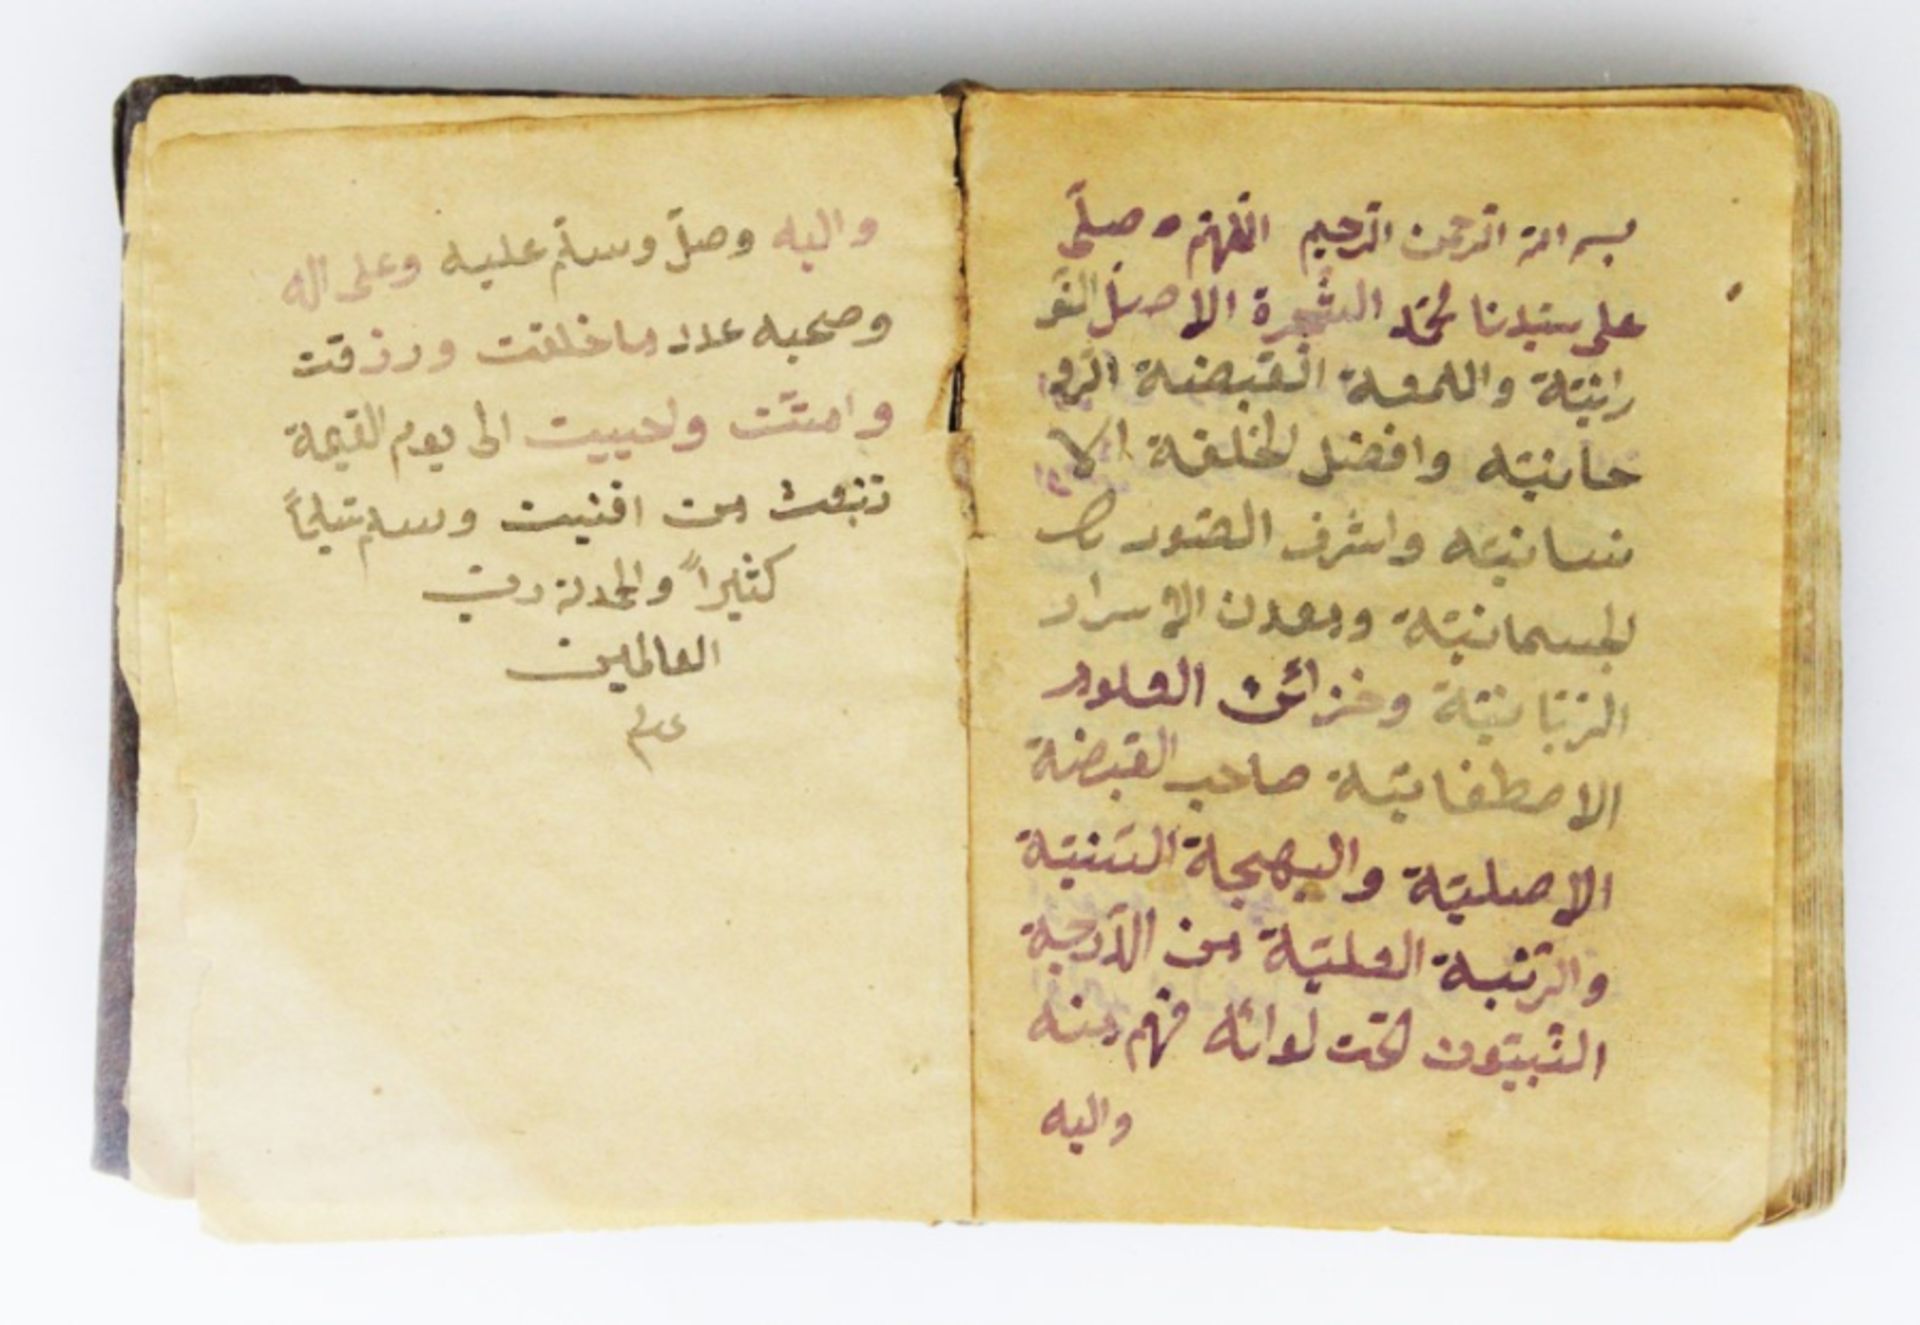 بسم الله الرحمن الرحيم اللهم صلى
على سيدنا محمد الشجرة الاصل النو
رانية واللمعة القبضة الرو
حانيه وافضل الخلقة الا
نسانيه واشرف الصور
الجسمانية ومعدن الاسرار
الربانية وخزائن العلوم
الاصطفائية صاحب القبضة
الاصلية والبهجة السنية
والرتبة العلية من الدرجة
النبيون تحت لوائه فهم منه
واليه
واليه وصل وسلم عليه وعلى اله
وصحبه عدد ما خلقت ورزقت
وامتت واحييت الى يوم القيمة
تبعث من افنيت وسلم تسليماً
كثيراً والحمد لله رب
العالمين